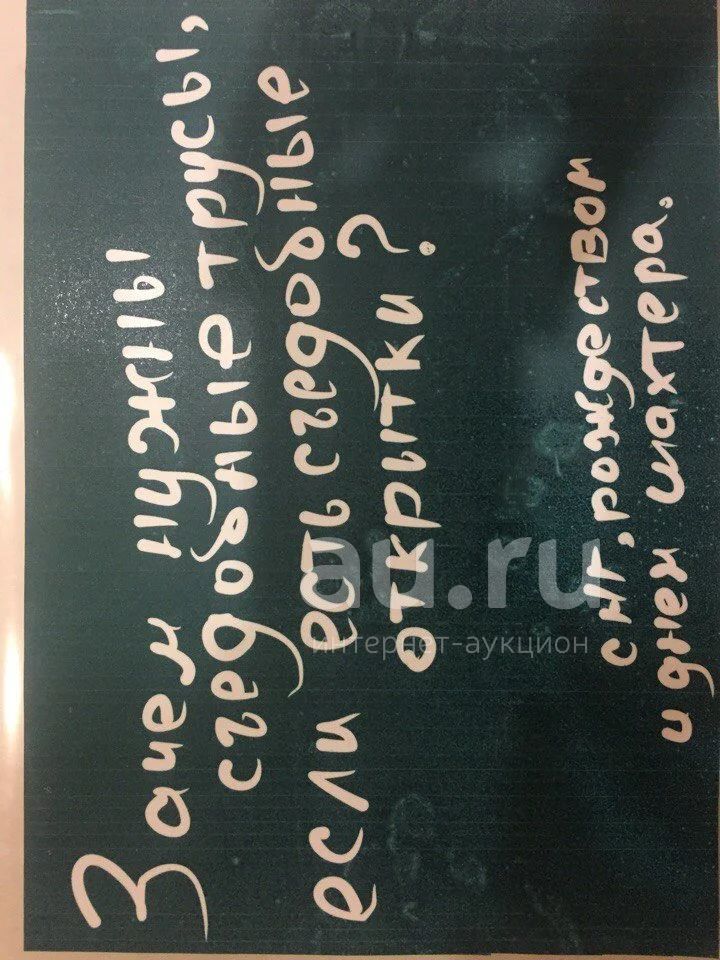 Зачем нужны
съедобные трусы,
если есть съедобные
открытки?
с НГ, рождеством
и днем шахтера.
au.ru
интернет-аукцион